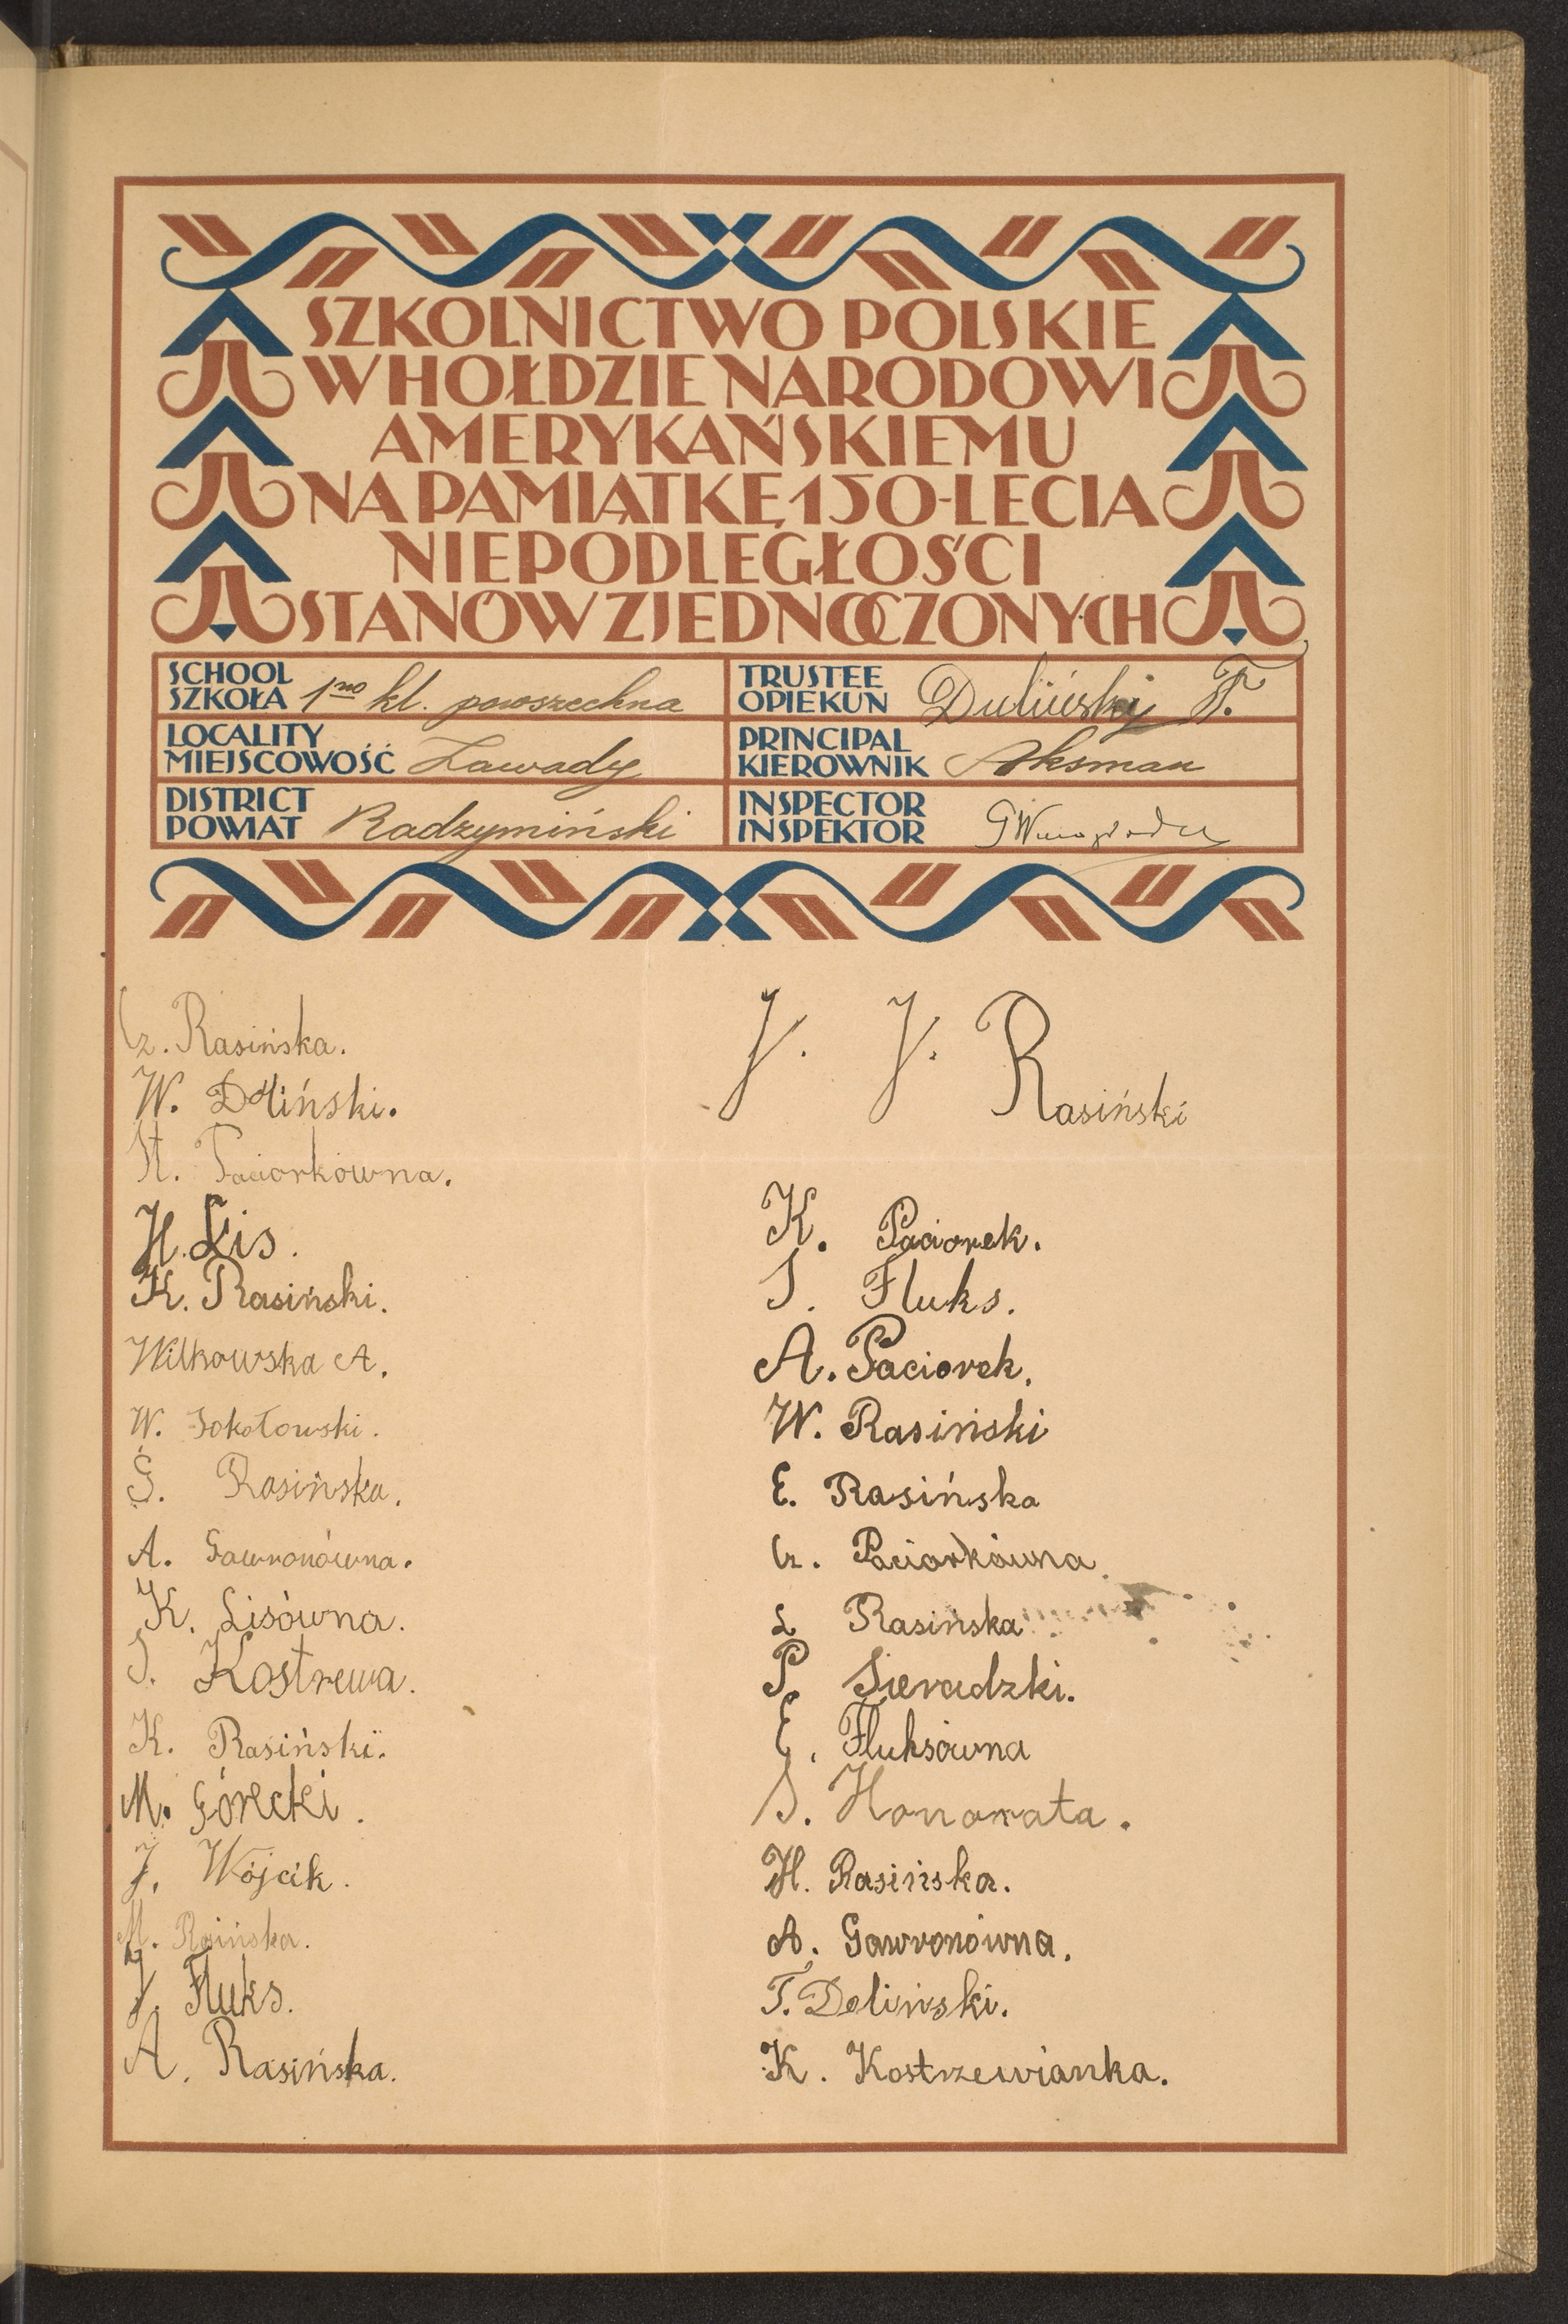 SZKOLNICTWO POLSKIE
W HOŁDZIE NARODOWI
AMERYKAŃSKIEMU
NA PAMIĄTKĘ 150-LECIA
NIEPODLEGŁOŚCI
STANÓW ZJEDNOCZONYCH
SCHOOL
SZKOŁA 1no kl. powszechna
TRUSTEE
OPIEKUN Duliński F.
LOCALITY
MIEJSCOWOŚĆ Zawady
PRINCIPAL
KIEROWNIK Aksman
DISTRICT
POWIAT Radzymiński
INSPECTOR
INSPEKTOR
Cz. Rasińska.
W. Doliński.
St. Paciorkówna.
H. Lis.
K. Rasiński.
Wilkowska A.
W. Sokołowski.
G. Rasińska.
A. Gawronówna.
K. Lisówna.
J. Kostrewa.
K. Rasiński.
M. Górecki.
J. Wójcik.
M. Rsińska.
J. Fluks.
A. Rasińska.
J. J. Rasiński
K. Paciorek.
S. Fluks.
A. Paciorek.
W. Rasiński
E. Rasińska
Cz. Paciorkówna.
L Rasińska
P Sieradzki.
E. Fluksówna
S. Honorata.
H. Rasińska.
A. Gawronówna.
T. Doliński.
K. Kostrzewianka.